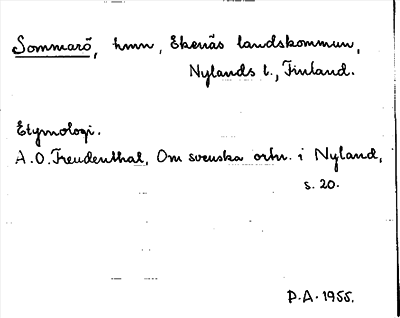 Sommarö, hmn, Ekenäs landskommun,
Nylands l., Finland.
Etymologi.
A.O. Freudenthal, Om svenska ortn. i Nyland,
s. 20.
P.A. 1955.